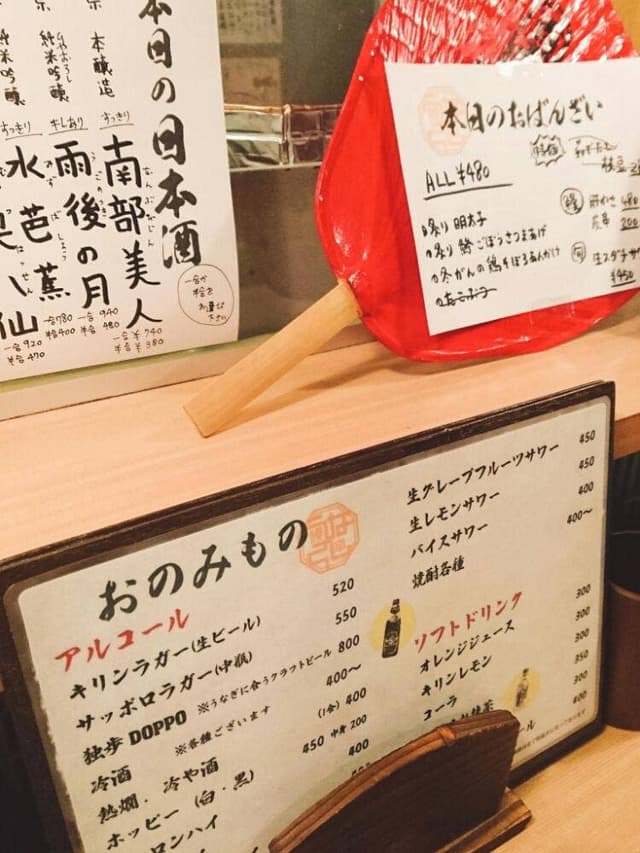 本日の日本酒
本醸造
すっきり
南部美人
なんぶびじん
一合 ¥740
半合 ¥380
純米吟醸
キレあり
雨後の月
うごのつき
一合 940
半合 480
ひやおろし
純米吟醸
すっきり
水芭蕉
みずばしょう
一合 780
半合 400
仙
はっせん
一合 920
半合 470
一合か
半合を
お選び
下さい
本日のおばんざい
ALL ¥480
炙り明太子
ごぼうさつまあげ
冬がんの鶏そぼろあんかけ
枝豆
480
200
生スダチサワー
¥450
おのみもの
アルコール
キリンラガー(生ビール) 520
サッポロラガー(中瓶) 550
独歩DOPPO ※うなぎに合うクラフトビール 800
冷酒 ※各種ございます 400〜
熱燗・冷や酒 (1合) 400
ホッピー (白・黒) 450 中身200
ロンハイ 400
生グレープフルーツサワー 450
生レモンサワー 450
バイスサワー 400
焼酎各種 400〜
ソフトドリンク
オレンジジュース 300
キリンレモン 300
コーラ 300
抹茶 350
ール 300
400